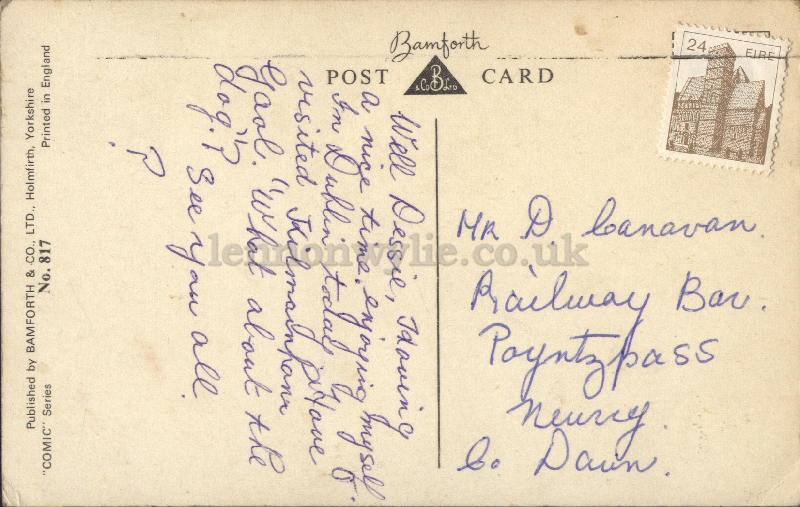 Bamforth
POST CARD
B
& Co LTD
24 EIRE
Well Dessie, Having
a nice time, enjoying myself
In Dublin today. &
visited Kilmainham
Gaol. "What about the
dog"? See you all.
P.
MR D. Canavan.
Railway Bar.
Poyntzpass
Newry.
Co Down.
Published by BAMFORTH & CO. LTD., Holmfirth, Yorkshire
Printed in England
"COMIC" Series No. 817
lennonwylie.co.uk